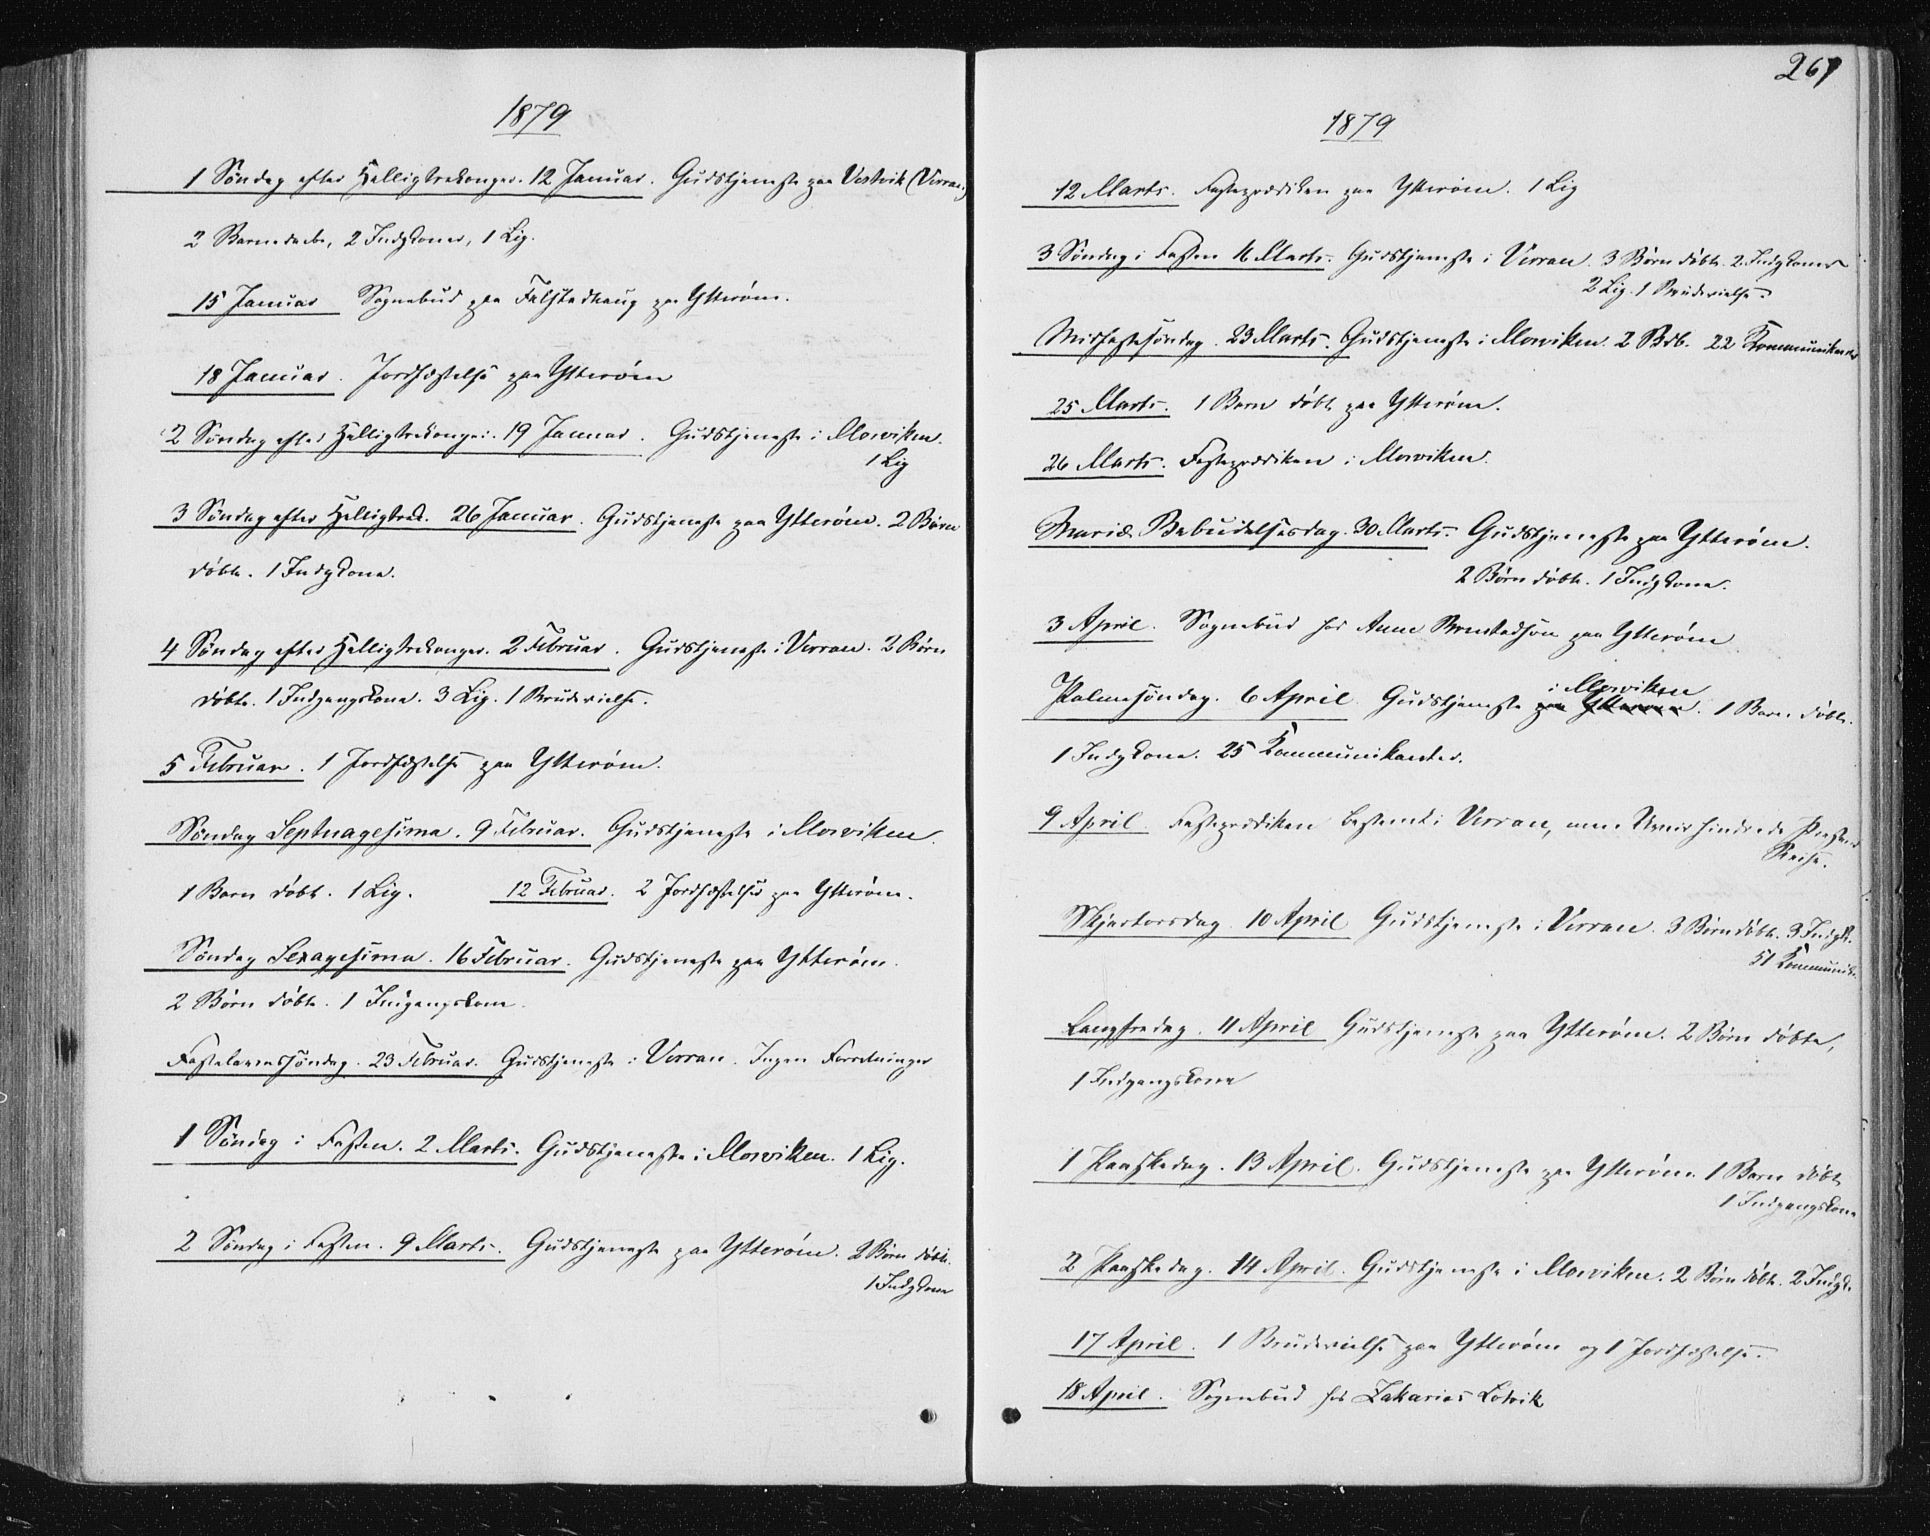 1879
1 Søndag efter Helligtrekonger. 12 Januar. Gudstjeneste paa Vestvik (Verran)
2 Barnedaabe, 2 Indgkoner, 1 Lig.
15 Januar Sognebud paa Falstadhaug paa Ytterøen.
18 Januar. Jordfæstelse paa Ytterøen
2 Søndag efter Helligtrekonger. 19 Januar. Gudstjeneste i Mosviken.
1 Lig
3 Søndag efter Helligtrek. 26 Januar. Gudstjeneste paa Ytterøen. 2 Børn
døbte. 1 Indgkone.
4 Søndag efter Helligtrekonger. 2 Februar. Gudstjeneste i Verran. 2 Børn
døbte. 1 Indgangskone. 3 Lig. 1 Brudevielse.
5 Februar. 1 Jordfæstelse paa Ytterøen.
Søndag Septuagesima. 9 Februar. Gudstjeneste i Mosviken.
1 Barn døbt. 1 Lig. 12 Februar. 2 Jordfæstelser paa Ytterøen.
Søndag Sexagesima. 16 Februar. Gudstjeneste paa Ytterøen.
2 Børn døbte. 1 Indgangskone.
Fastelavnssøndag. 23 Februar. Gudstjeneste i Verran. Ingen Forretninger
1 Søndag i Fasten. 2 Marts. Gudstjeneste i Mosviken. 1 Lig.
2 Søndag i Fasten. 9 Marts. Gudstjeneste paa Ytterøen. 2 Børn døbte.
1 Indgkone
267
1879
12 Marts. Fasteprædiken paa Ytterøen. 1 Lig
3 Søndag i Fasten 16 Marts. Gudstjeneste i Verran. 3 Børn døbte. 2 Indgkoner
2 Lig. 1 Brudevielse.
Midfastesøndag. 23 Marts. Gudstjeneste i Mosviken. 2 Bdb. 22 Kommunikanter
25 Marts. 1 Barn døbt paa Ytterøen.
26 Marts. Fasteprædiken i Mosviken.
Mariæ Bebudelsesdag. 30 Marts. Gudstjeneste paa Ytterøen.
2 Børn døbte. 1 Indgkone.
3 April. Sognebud hos Anne paa Ytterøen
i Mosviken
Palmesøndag. 6 April Gudstjeneste paa Ytterøen. 1 Barn døbt.
1 Indgkone. 25 Kommunikanter.
9 April. Fasteprædiken bestemt i Verran, men Uveir hindrede Præstens
Reise.
Skjærtorsdag. 10 April Gudstjeneste i Verran. 3 Børn døbte. 3 Indgk.
51 Kommunik.
Langfredag. 11 April Gudstjeneste paa Ytterøen. 2 Børn døbte,
1 Indgangskone
1 Paaskedag. 13 April. Gudstjeneste paa Ytterøen. 1 Barn døbt
1 Indgangskone
2 Paaskedag. 14 April. Gudstjeneste i Mosviken. 2 Børn døbte. 2 Indgk.
17 April. 1 Brudevielse paa Ytterøen og 1 Jordfæstelse.
18 April. Sognebud hos Zakarias Lotvik